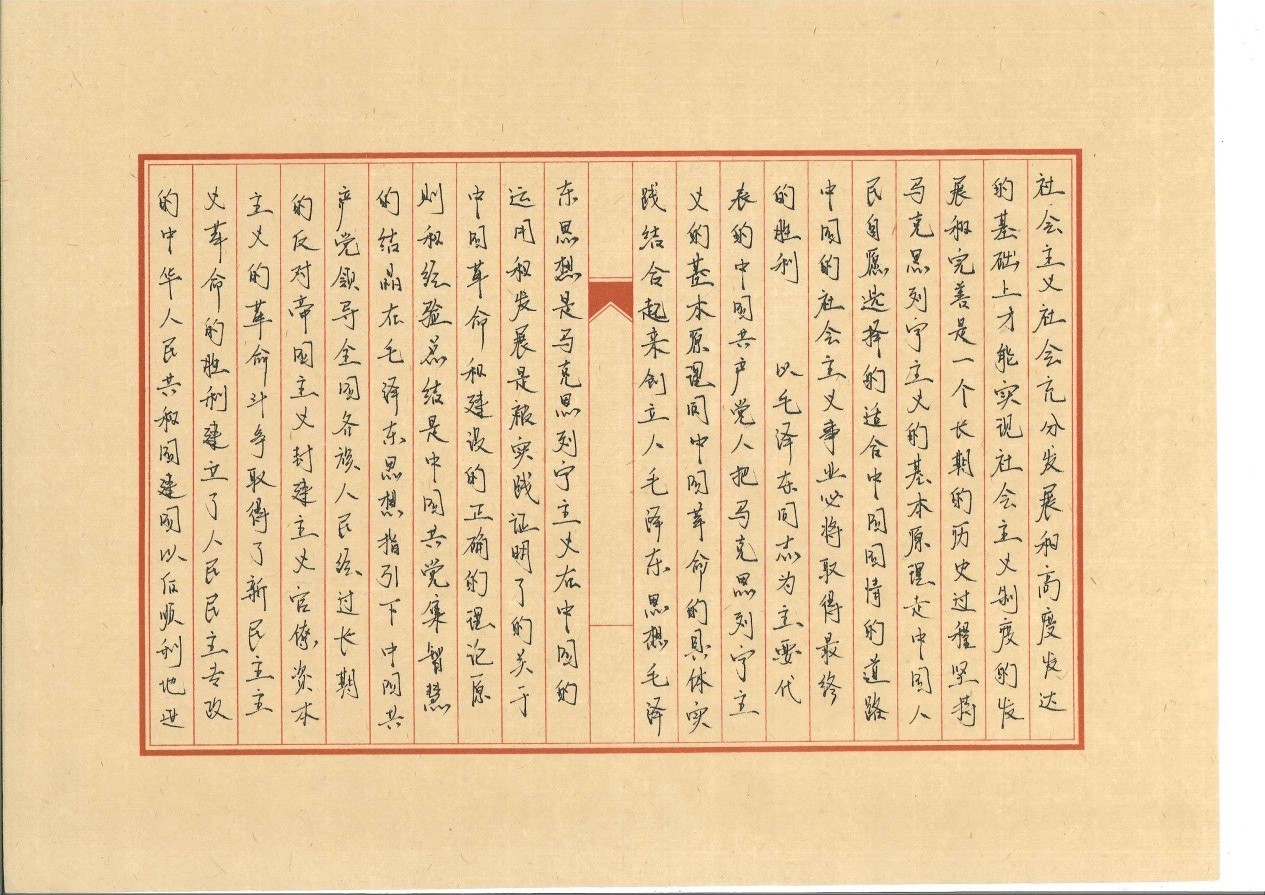 社会主义社会充分发展和高度发达
的基础上才能实现社会主义制度的发
展和完善是一个长期的历史过程坚持
马克思列宁主义的基本原理走中国人
民自愿选择的适合中国国情的道路
中国的社会主义事业必将取得最终
的胜利 以毛泽东同志为主要代
表的中国共产党人把马克思列宁主
义的基本原理同中国革命的具体实
践结合起来创立人毛泽东思想毛泽
东思想是马克思列宁主义在中国的
运用和发展是被实践证明了的关于
中国革命和建设的正确的理论原
则和经验总结是中国共党集智慧
的结晶在毛泽东思想指引下中国共
产党领导全国各族人民经过长期
的反对帝国主义封建主义官僚资本
主义的革命斗争取得了新民主主
义革命的胜利建立了人民民主专政
的中华人民共和国建国以后顺利地进